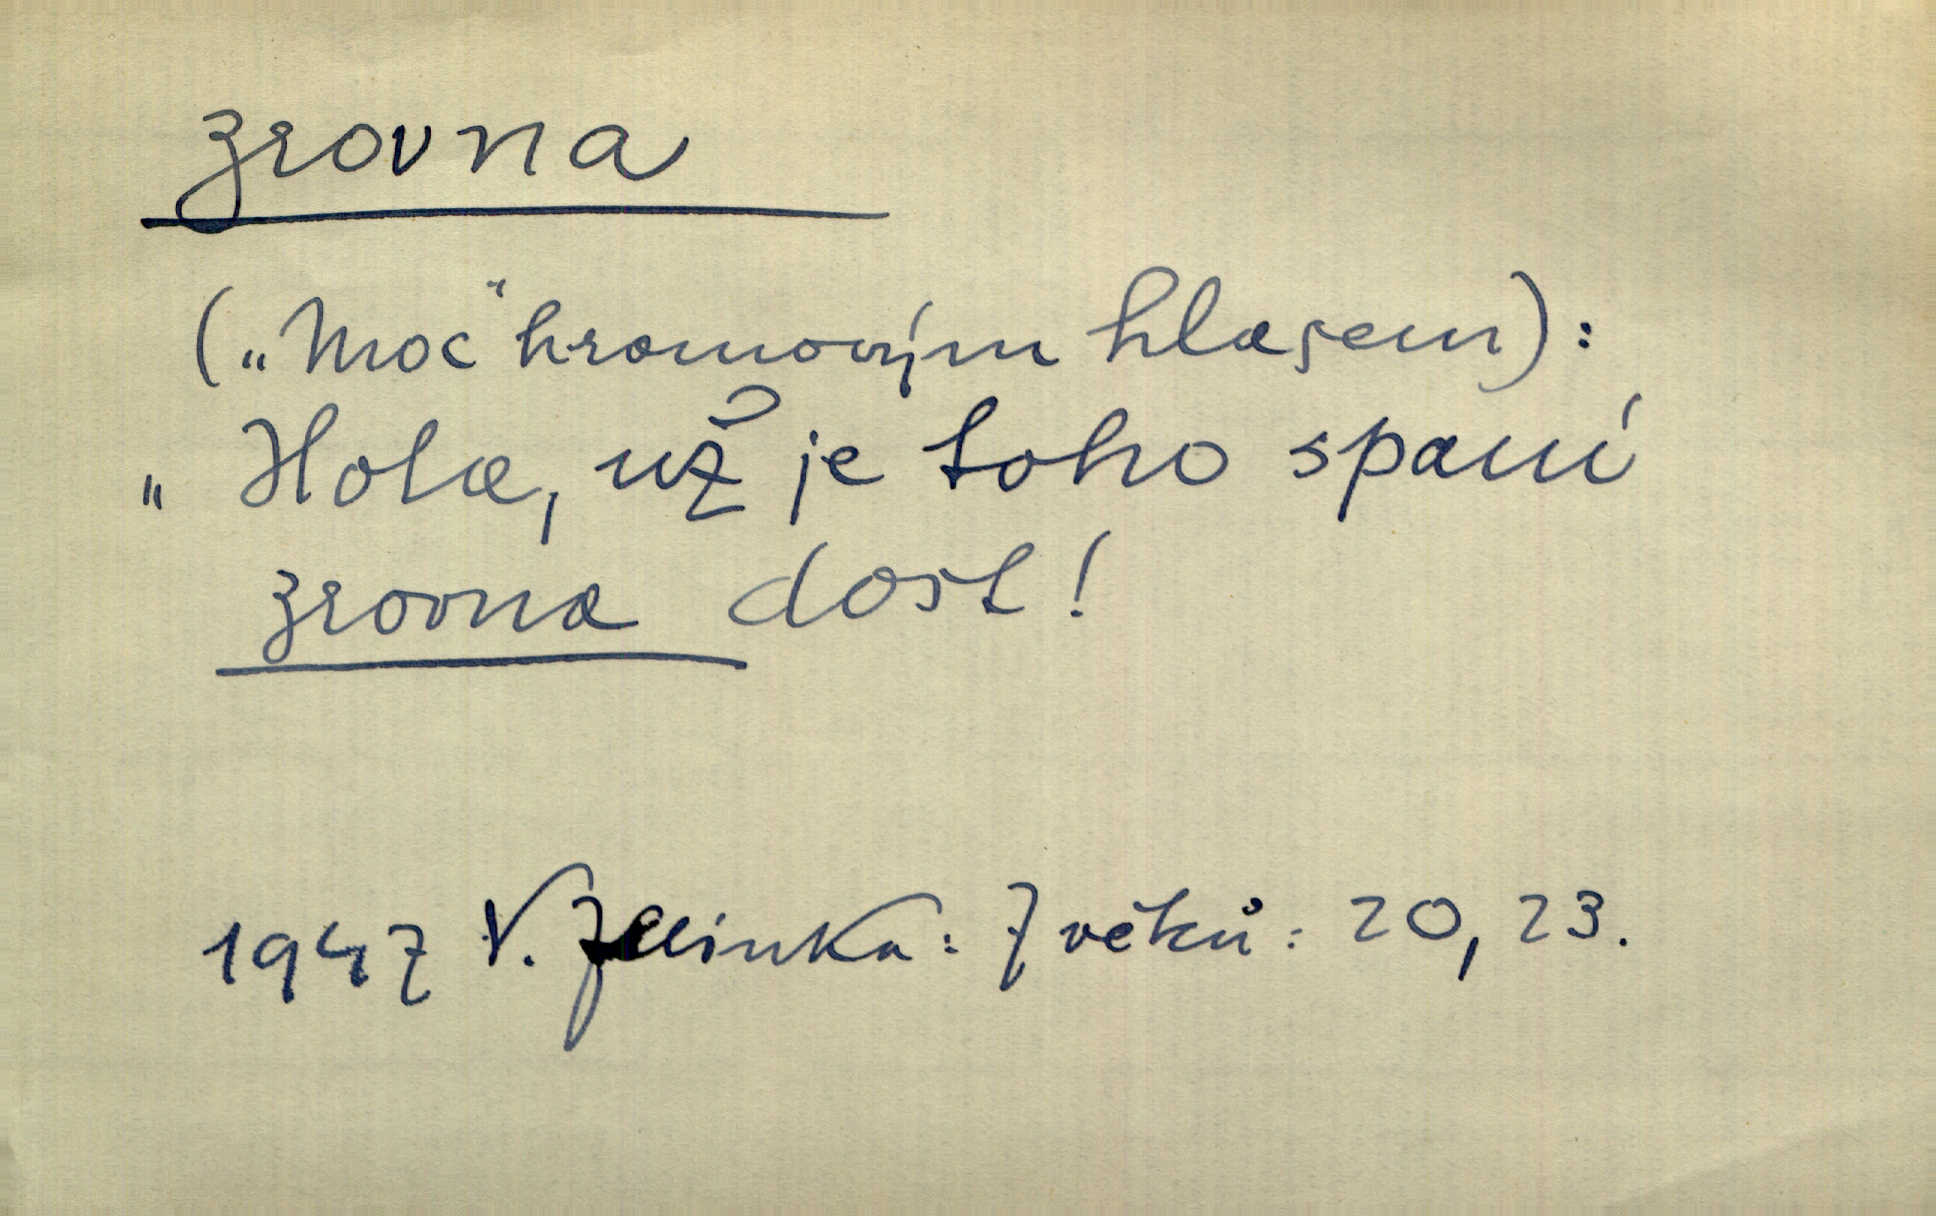 zrovna
(„Moc“ hromovým hlasem):
„Hola, už je toho spaní
zrovna dost!
1947 V. Jelínka: 7 věků: 20, 23.